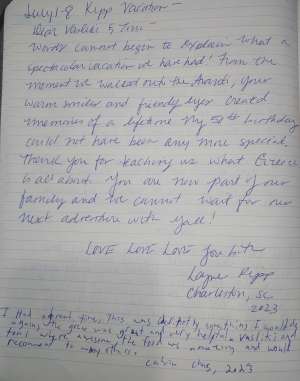 July 1-8 Repp Vacation -
Dear Vasilis & Tim -
Words cannot begin to explain what a
spectacular vacation we have had! From the
moment we walked out the doors, your
warm smiles and friendly eyes created
memories of a lifetime. My 50th birthday
could not have been any more special.
Thank you for teaching us what Greece
is all about. You are now part of our
family and we cannot wait for our
next adventure with y'all!
LOVE LOVE LOVE you both
Layne Repp
Charleston, SC
2023
I Had a great time, This was definitely something I would do
again, the crew was great and very helpful. Vasilis and
Tim were awesome the food was amazing and would
recommend to any others.
2023